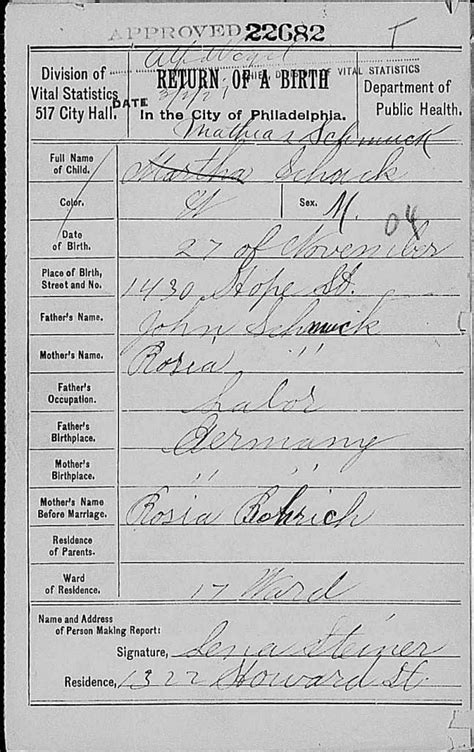 APPROVED 22682
VITAL STATISTICS
Division of
Vital Statistics
517 City Hall.
RETURN OF A BIRTH
DATE 3/2/21
In the City of Philadelphia.
Department of
Public Health.
Mathias Schmuck
Full Name
of Child.
Martha Schouck
Color.
W
Sex.
M.
04
Date
of Birth.
27 of November
Place of Birth,
Street and No.
1430 Hope St.
Father's Name.
John Schmuck
Mother's Name.
Rosia " "
Father's
Occupation.
Labor
Father's
Birthplace.
Germany
Mother's
Birthplace.
" "
Mother's Name
Before Marriage.
Rosia Bohrich
Residence
of Parents.
Ward
of Residence.
17 Ward
Name and Address
of Person Making Report:
Signature, Lena Steiner
Residence, 1322 Howard St.